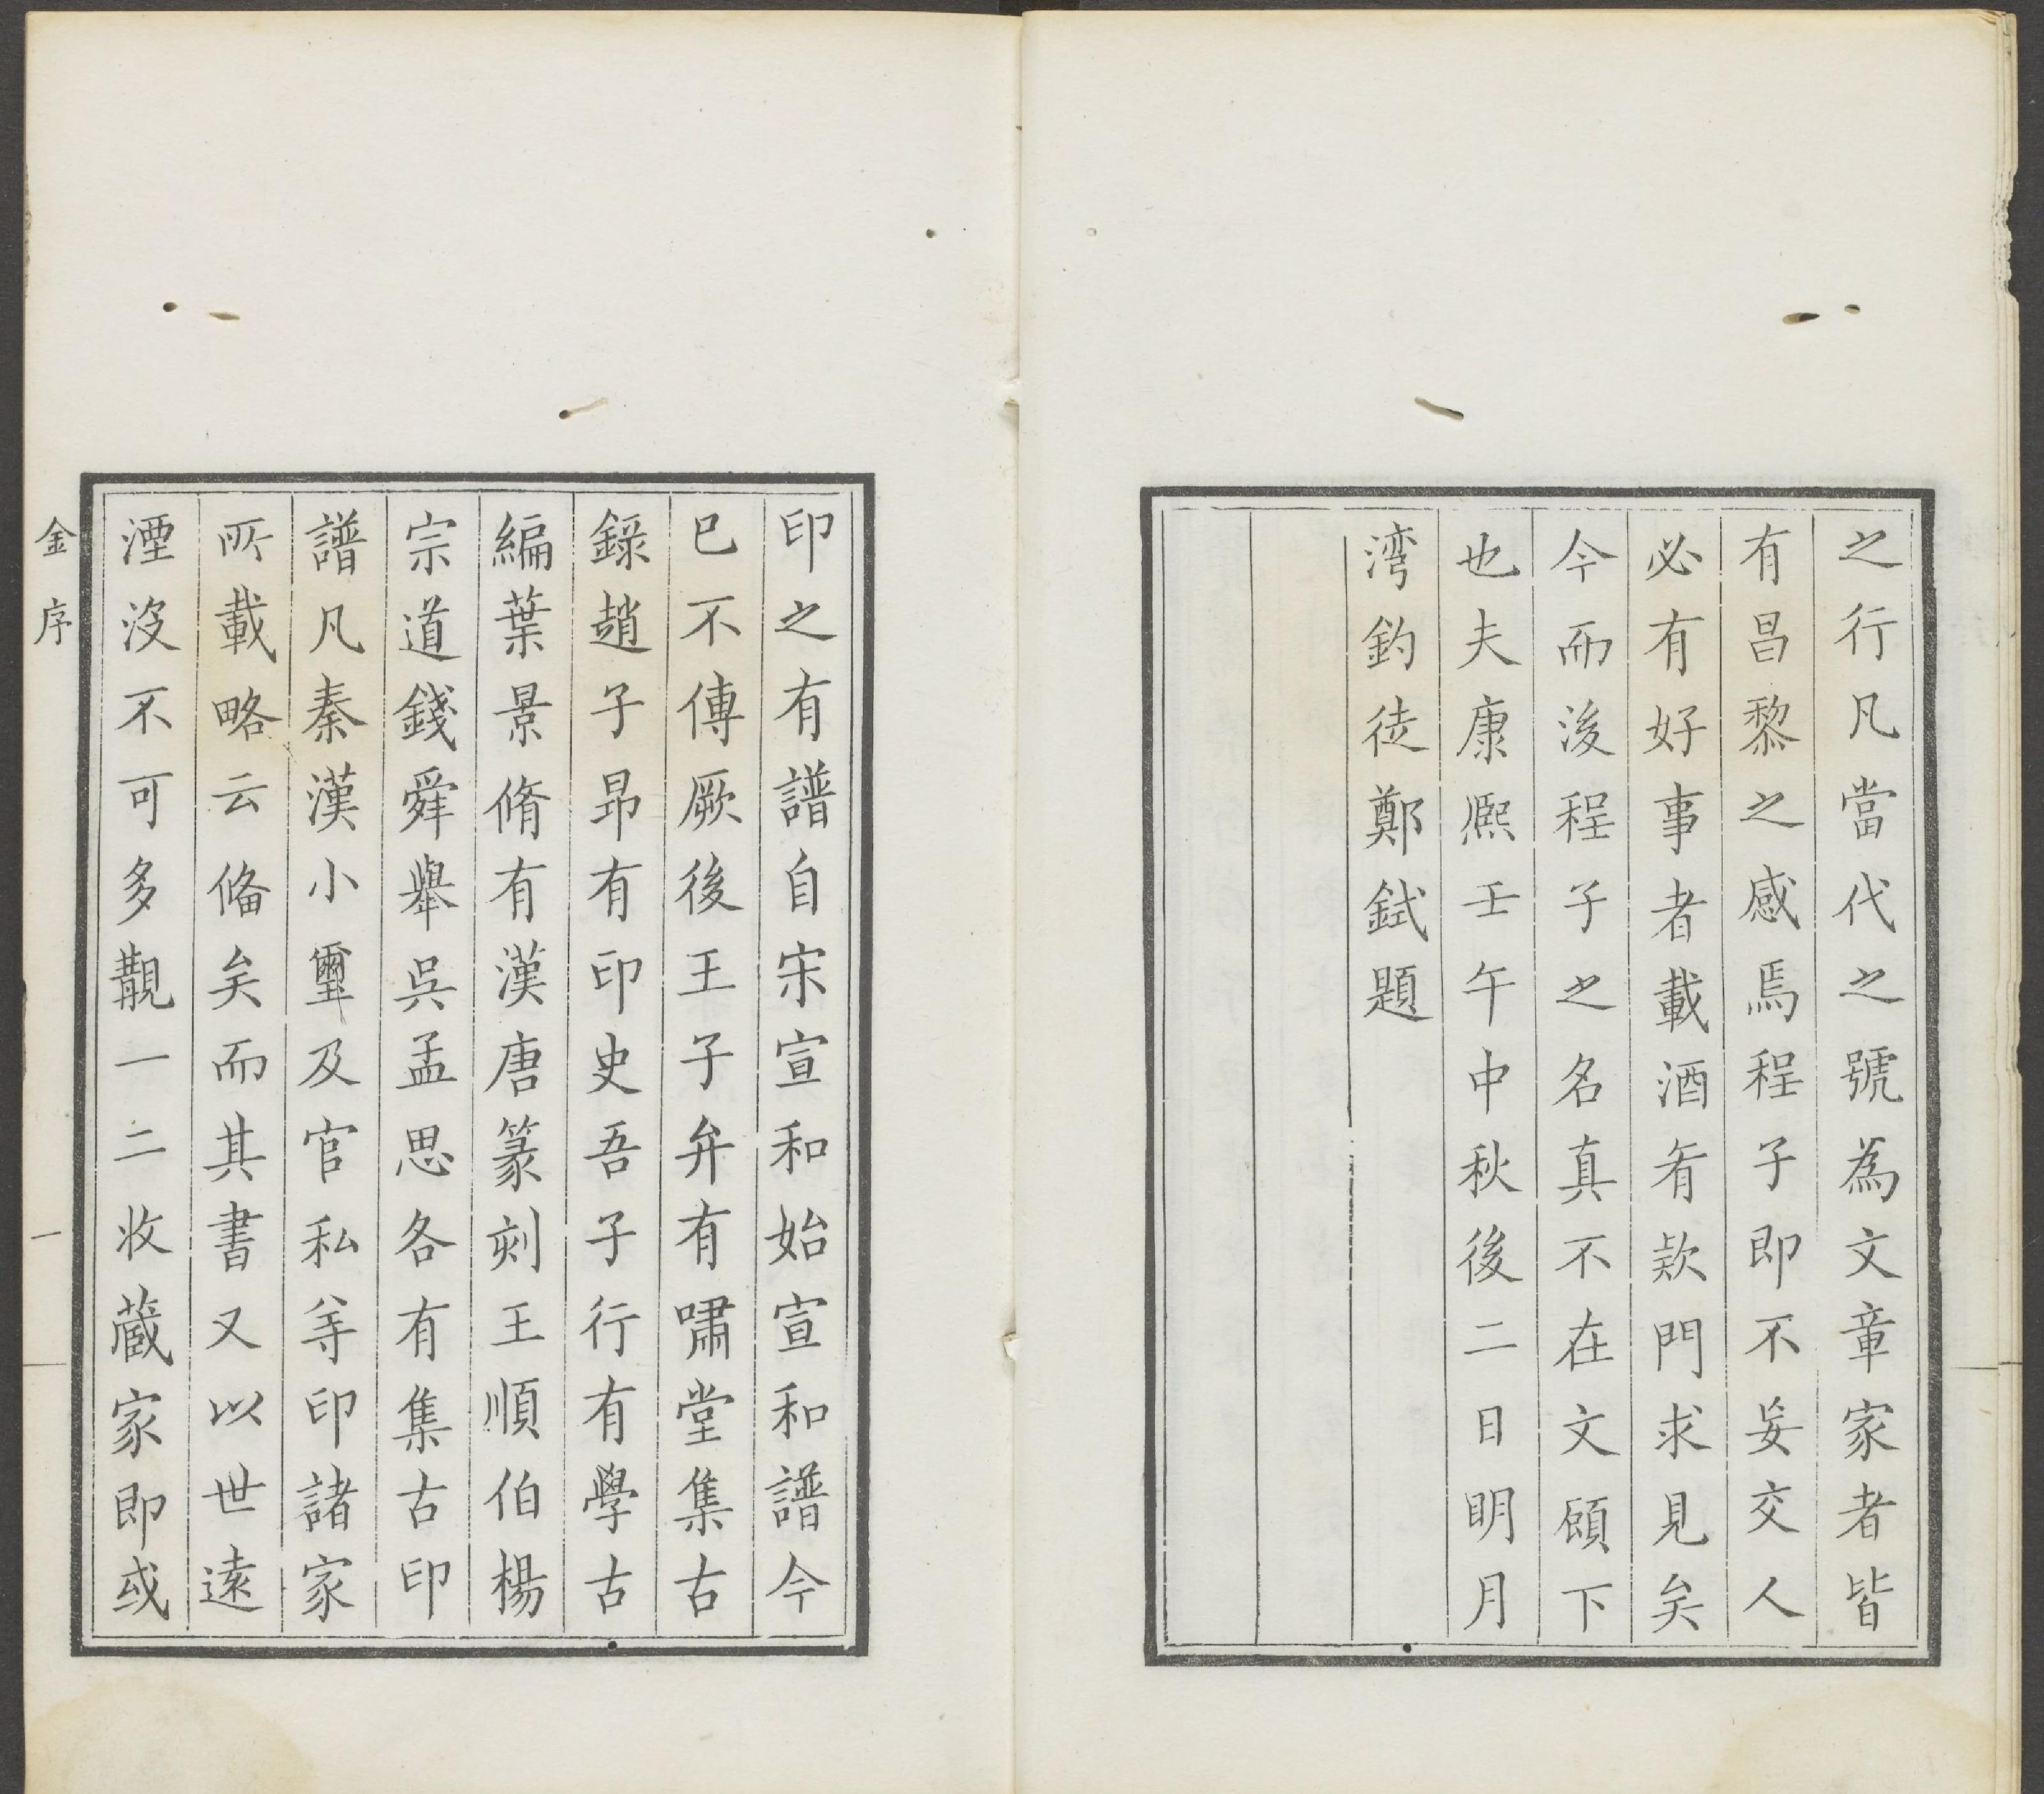 之行凡當代之號為文章家者皆
有昌黎之感焉程子即不妄交人
必有好事者載酒肴款門求見矣
今而後程子之名真不在文頠下
也夫康熙壬午中秋後二日明月
湾釣徒鄭鉽題
印之有譜自宋宣和始宣和譜今
已不傳厥後王子弁有嘯堂集古
錄趙子昂有印史吾子行有學古
編葉景脩有漢唐篆刻王順伯楊
宗道錢舜舉吳孟思各有集古印
譜凡秦漢小璽及官私等印諸家
所載略云俻矣而其書又以世遠
湮沒不可多覯一二收蔵家即或
金序
一